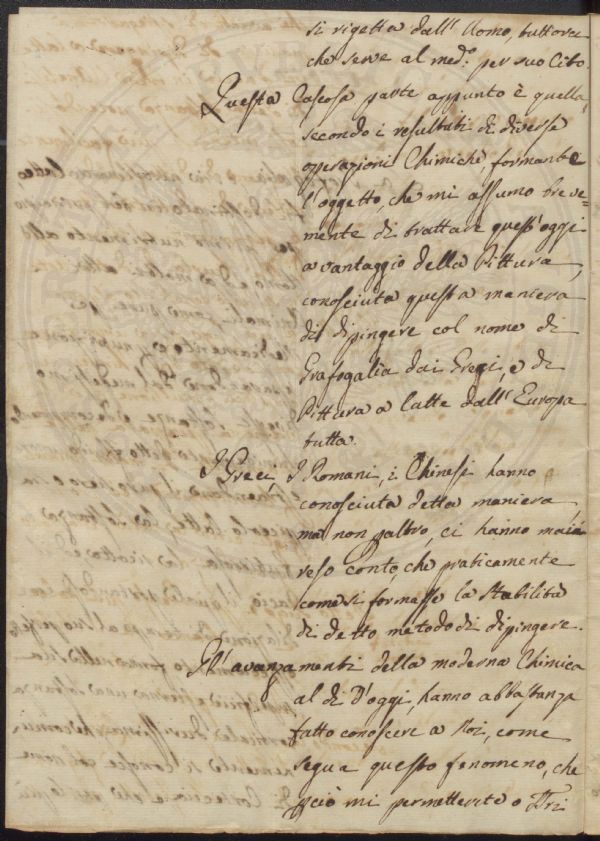 si rigetta dall' Uomo, tuttora
che serve al med.º per suo Cibo.
Questa Caseosa parte appunto è quella,
secondo i resultati di diverse
operazioni Chimiche, formante
l'oggetto, che mi assumo breve=
mente di trattare quest'oggi
a vantaggio della Pittura,
conosciuta questa maniera
di dipingere col nome di
Grafogalìa dai Greci, e di
Pittura a latte dall' Europa
tutta.
I Greci, I Romani, i Chinesi hanno
conosciuta detta maniera,
ma non paltro, ci hanno mai
reso conto, che praticamente
come si formasse la Stabilità
di detto metodo di dipingere.
Gl'avanzamenti della moderna Chimica
al di D'oggi, hanno abbastanza
fatto conoscere a Noi, come
segua questo fenomeno, che
pciò mi permetterete o